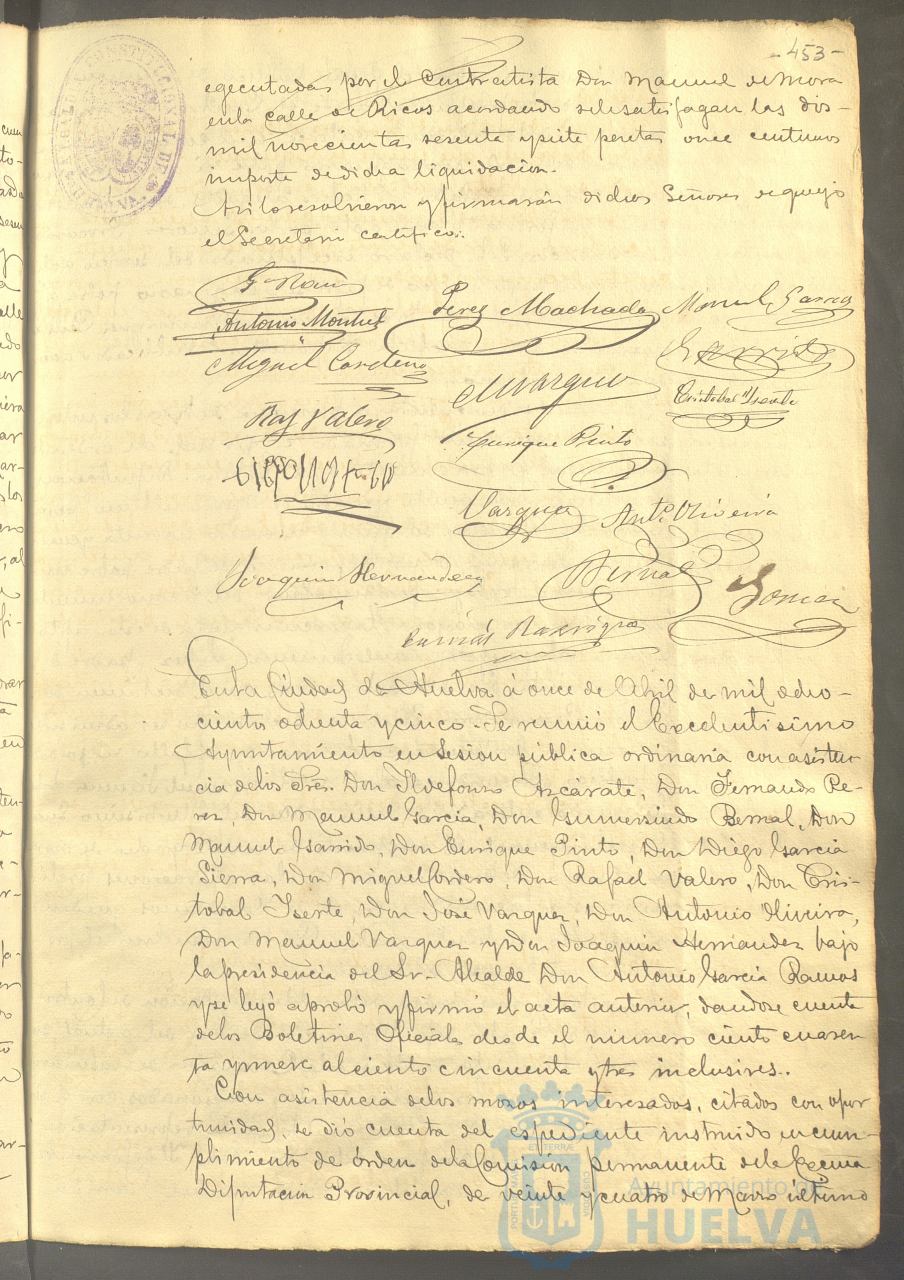 -453-
egecutadas por el Contratista Don Manuel de Mora
en la calle de Ricos acordando se le satisfagan las dos-
mil novecientas sesenta y siete pesetas once centimos
importe de dicha liquidacion.
Asi lo resolvieron y firmarán dichos Señores de que yo
el Secretario certifico.
Perez Machado Manuel Garcia
Antonio
Miguel Cordero Garrido
MVazquez Cristobal Iserte
Raf Valero
Enrique Pinto
Vazquez Antº Oliveira
Joaquin Hernandez Bernal
En la Ciudad de Huelva á once de Abril de mil ocho-
cientos ochenta y cinco. Se reunió el Excelentisimo
Ayuntamiento en sesion pública ordinaria con asisten-
cia de los Sres. Don Ildefonso Azcárate, Don Fernando Pe-
rez, Don Manuel Garcia, Don Gumersindo Bernal, Don
Manuel Garrido, Don Enrique Pinto, Don Diego Garcia
Sierra, Don Miguel Cordero, Don Rafael Valero, Don Cris-
tobal Iserte, Don José Vazquez, Don Antonio Oliveira,
Don Manuel Vazquez y Don Joaquin Hernandez bajo
la presidencia del Sr. Alcalde Don Antonio Garcia Ramos
y se leyó aprobó y firmó el acta anterior, dandose cuenta
de los Boletines Oficiales desde el número ciento cuaren-
ta y nueve al ciento cincuenta y tres inclusives.
Con asistencia de los mozos interesados, citados con opor-
tunidad, se dió cuenta del espediente instruido en cum-
plimiento de órden de la Comision permanente de la Excma
Diputacion Provincial, de veinte y cuatro de Marzo último
Ayuntamiento de
HUELVA